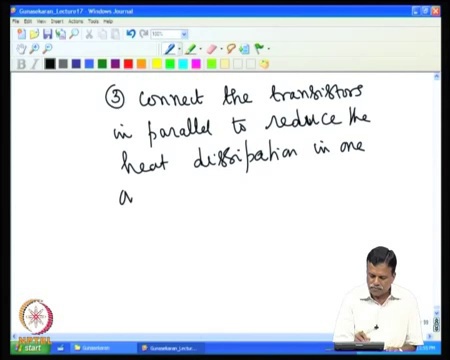 Gunasekaran_Lecture17 - Windows Journal
File Edit View Insert Actions Tools Help
100%
B I
③ Connect the transistors
in parallel to reduce the
heat dissipation in one
a
NPTEL
start
Gunasekaran
Gunasekaran_Lectu...